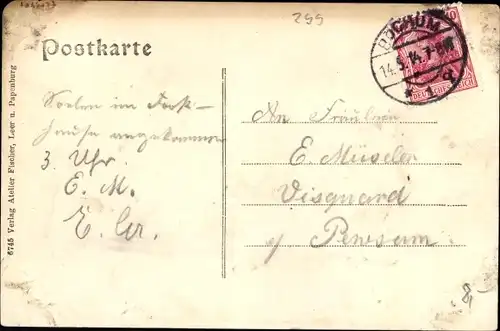 295
Postkarte
BOCHUM
14.5.14. 7-8N
10
DEUTSCHES REICH
Soeben im Forst-
hause angekommen
3 Uhr.
E. M.
An Fräulein
E. Müseler
Visquard
Pewsum
8,-
6745 Verlag Atelier Fischer, Leer u. Papenburg